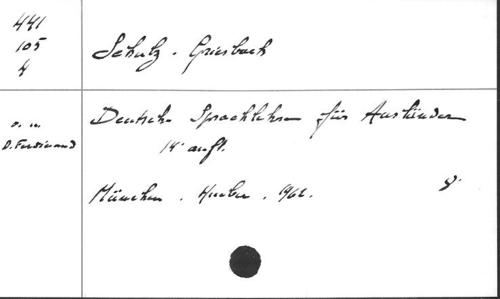 441
105
4
Schulz - Griesbach
o. u.
D. Ferdinand
Deutsche Sprachlehre für Ausländer
14 aufl.
München . Hueber . 1962.
8°